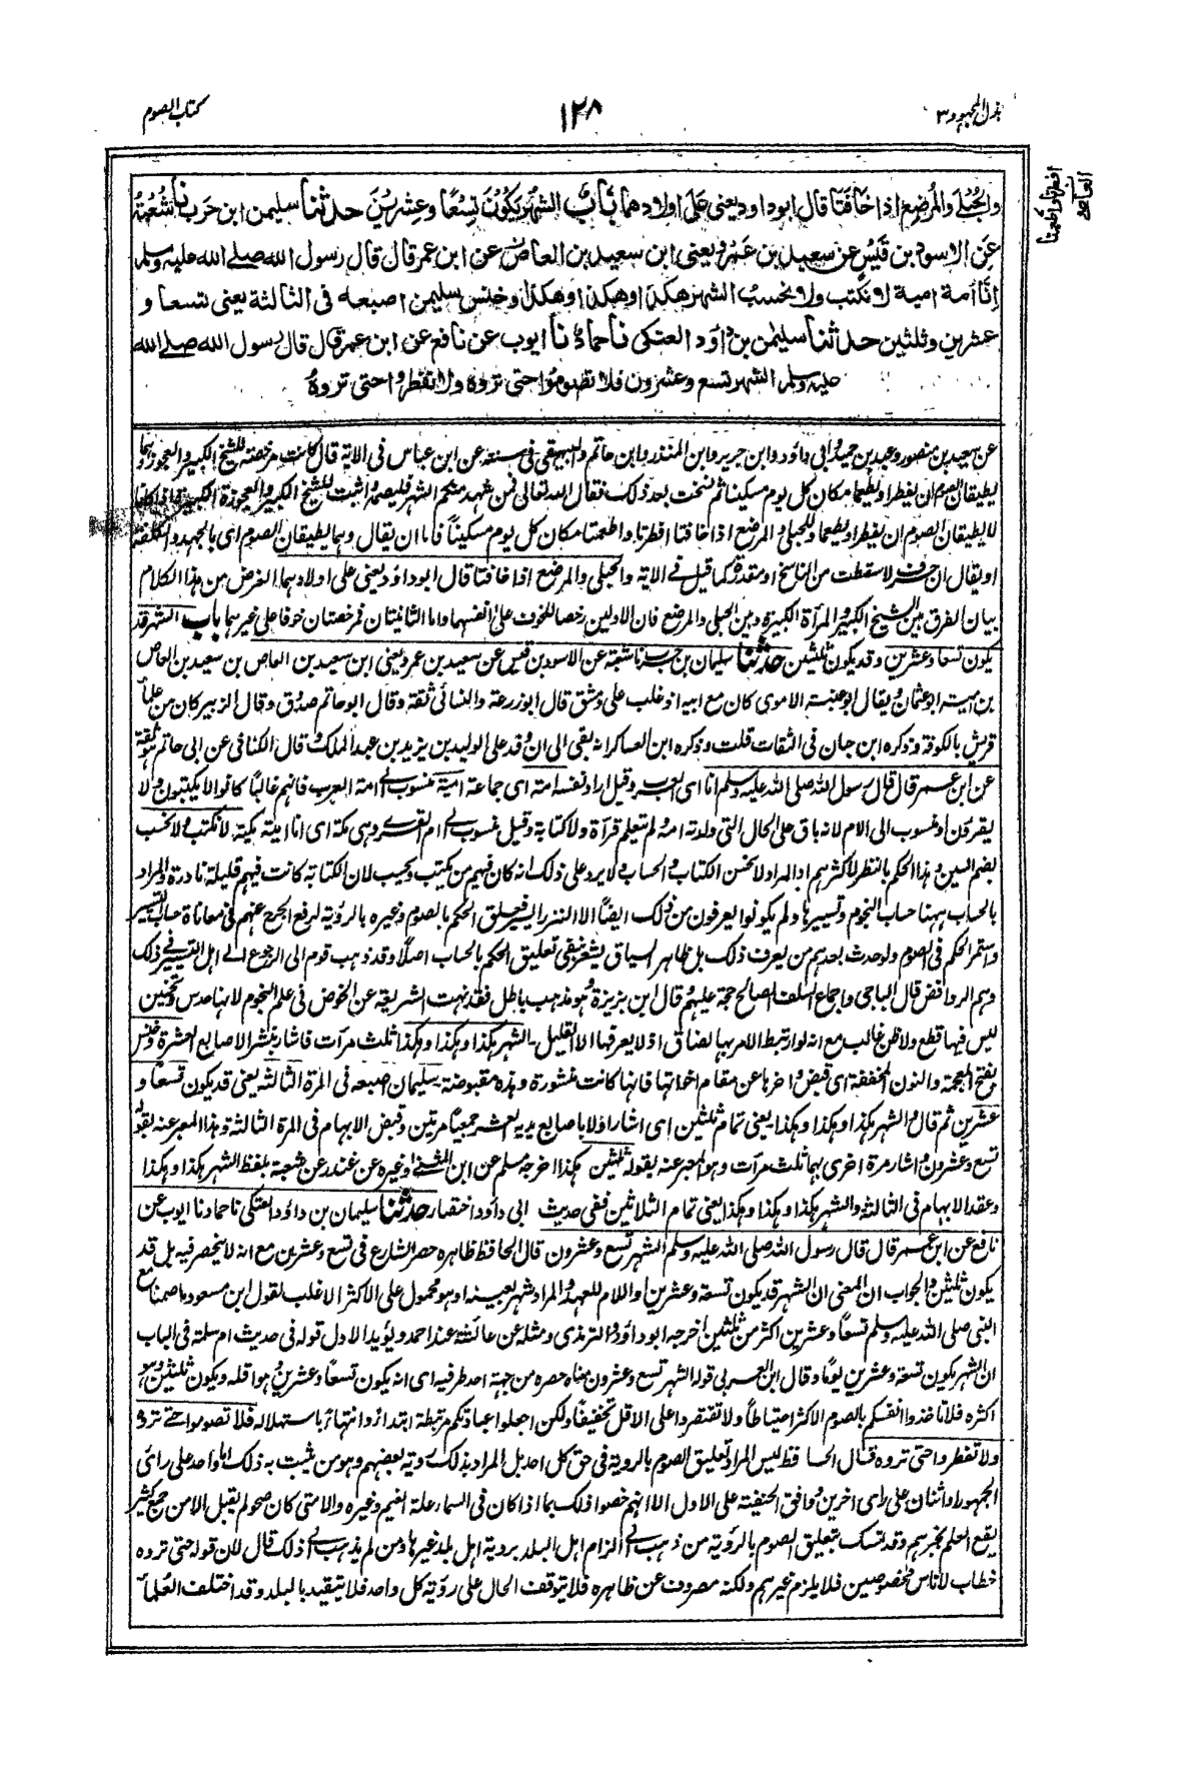 بذل المجهود ٣
١٢٨
كتاب الصوم
افطرتا واطعمتا
العاص
والحُبْلَى والمُرضِع اذا خافَتَا قال ابوداود يعنى عَلَى اولادهما بَابٌ الشهرُ يَكُوْنُ تِسْعًا وعِشرِيْنَ حدثنا سليمن ابن حَرب نا شُعْبَةُ
عَنِ الاسود بن قَيْسٍ عن سعيد بن عَمْرٍو يعنى ابن سعيد بن العاص عن ابن عمر قال قال رسول الله صلے الله عليه وسلم
اِنَّا أُمة امية لا نَكْتُب ولا نحسُبُ الشهر هكذا وهكذا وهكذا وخنس سليمن اصبعه فى الثالثة يعنى تسعا و
عشرين وثلثين حدثنا سليمن بن داوَد العتكى نا حمادٌ نا ايوب عن نافع عن ابن عمر قال قال رسول الله صلے الله
عليه وسلم الشهر تسع وعشرون فلا تصوموا حتى تروهُ ولا تفطروا حتى تروهُ
عن سعيد بن منصور وعبد بن حميد وابى داؤد وابن جرير وابن المنذر وابن حاتم والبيهقى فى سننه عن ابن عباس فى الاية قال كانت مرخصة للشيخ الكبير والعجوز وهما
يطيقان الصوم ان يفطرا ويطعما مكان كل يوم مسكينا ثم نسخت بعد ذلك فقال الله تعالى فمن شهد منكم الشهر فليصمه واثبت للشيخ الكبير والعجوزة الكبيرة اذا كانا
لا يطيقان الصوم ان يفطرا ويطعما وللحبلى والمرضع اذا خافتا افطرتا واطعمتا مكان كل يوم مسكيناً فاما ان يقال وهما يطيقان الصوم اى بالجهد والكلفة
او يقال ان حرف لا سقطت من الناسخ او مقدرة كما قيل فى الاية والحبلى والمرضع اذا خافتا قال ابوداؤد يعنى على اولادهما الغرض من هذا الكلام
بيان الفرق بين الشيخ الكبير والمرأة الكبيرة وبين الحبلى والمرضع فان الاولين رخصا للخوف على انفسهما واما الثانيتان فرخصتان خوفا على غيرهما باب الشهر قد
يكون تسعا وعشرين وقد يكون ثلثين حدثنا سليمان بن حرب نا شعبة عن الاسود بن قيس عن سعيد بن عمرو يعنى ابن سعيد بن العاص بن سعيد بن العاص
بن امية ابو عثمان ويقال ابو عنبسة الاموى كان مع ابيه اذ غلب على دمشق قال ابوزرعة والنسائى ثقة وقال ابوحاتم صدوق وقال الزبير كان من علماء
قريش بالكوفة وذكره ابن حبان فى الثقات قلت وذكره ابن العساكر انه بقى الى ان وفد على الوليد بن يزيد بن عبد الملك وقال الكنانى عن ابى حاتم هو ثقة
عن ابن عمر قال قال رسول الله صلى الله عليه وسلم انا اى العرب وقيل اراد نفسه امة اى جماعة امية منسوب الى امة العرب فانهم غالبا كانوا لا يكتبون ولا
يقرؤن او منسوب الى الام لانه باق على الحال التى ولدته امه ولم تتعلم قرأة ولا كتابة وقيل منسوب الى ام القرى وهى مكة اى انا امية مكية لا نكتب ولا نحسب
بضم السين وهذا الحكم بالنظر لاكثرهم او المراد لا نحسن الكتاب والحساب ولا يرد على ذلك انه كان فيهم من يكتب ويحسب لان الكتابة كانت فيهم قليلة نادرة والمراد
بالحساب ههنا حساب النجوم وتسييرها ولم يكونوا يعرفون من ذلك ايضاً الا النزر اليسير فعلق الحكم بالصوم وغيره بالرؤية لرفع الحرج عنهم فى معاناة حساب التسيير
واستمر الحكم فى الصوم ولو حدث بعدهم من يعرف ذلك بل ظاهر السياق يشعر بنفى تعليق الحكم بالحساب اصلاً وقد ذهب قوم الى الرجوع الى اهل التسيير فى ذلك
وهم الروافض قال الباجى واجماع السلف الصالح حجة عليهم قال ابن بزيزة وهو مذهب باطل فقد نهت الشريعة عن الخوض فى علم النجوم لانها حدس وتخمين
ليس فيها قطع ولا ظن غالب مع انه لو ارتبط الامر بها لضاق اذ لا يعرفها الا القليل الشهر هكذا وهكذا وهكذا ثلث مرآت فاشار بنشر الاصابع العشرة وخنس
بفتح المعجمة والنون المخففة اى قبض واخرها عن مقام اخواتها فانها كانت منشورة وهذه مقبوضة سليمان اصبعه فى المرة الثالثة يعنى قد يكون تسعا و
عشرين ثم قال والشهر هكذا وهكذا وهكذا يعنى تمام ثلثين اى اشار اولا باصابع يديه العشر جميعاً مرتين وقبض الابهام فى المرة الثالثة وهذا المعبر عنه بقوله
تسع وعشرون واشار مرة اخرى بهما ثلث مرآت وهو المعبر عنه بقوله ثلثين هكذا اخرجه مسلم عن ابن المثنى وغيره عن غندر عن شعبة بلفظ الشهر هكذا وهكذا
وعقد الابهام فى الثالثة والشهر هكذا وهكذا وهكذا يعنى تمام الثلاثين ففى حديث ابى داؤد اختصار حدثنا سليمان بن داؤد العتكى نا حماد نا ايوب عن
نافع عن ابن عمر قال قال رسول الله صلى الله عليه وسلم الشهر تسع وعشرون قال الحافظ ظاهره حصر الشارع فى تسع وعشرين مع انه لا ينحصر فيه بل قد
يكون ثلثين والجواب ان المعنى ان الشهر قد يكون تسعة وعشرين او اللام للعهد والمراد شهر بعينه او هو محمول على الاكثر الاغلب لقول ابن مسعود ما صمنا مع
النبى صلى الله عليه وسلم تسعاً وعشرين اكثر من ثلثين اخرجه ابوداؤد والترمذى ومثله عن عائشة عند احمد ويؤيد الاول قوله فى حديث ام سلمة فى الباب
ان الشهر يكون تسعة وعشرين يوماً وقال ابن العربى قوله الشهر تسع وعشرون معناه حصره من جهة احد طرفيه اى انه يكون تسعاً وعشرين وهو اقله ويكون ثلثين وهو
اكثره فلا تاخذوا انفسكم بالصوم الاكثر احتياطاً ولا تقتصروا على الاقل تخفيفاً ولكن اجعلوا عبادتكم مرتبطة ابتداءً وانتهاءً باستهلاله فلا تصوموا حتى تروه
ولا تفطروا حتى تروه قال الحافظ ليس المراد تعليق الصوم بالرؤية فى حق كل احد بل المراد بذلك رؤية بعضهم وهو من يثبت به ذلك اما واحد على رأى
الجمهور او اثنان على رأى اخرين ووافق الحنفية على الاول الا انهم خصوا ذلك بما اذا كان فى السماء علة الغيم وغيره والا متى كان صحو لم يقبل الا من جمع كثير
يقع العلم بخبرهم وقد تمسك بتعليق الصوم بالرؤية من ذهب الى الزام اهل البلد برؤية اهل بلد غيرها ومن لم يذهب الى ذلك قال لان قوله حتى تروه
خطاب لاناس مخصوصين فلا يلزم غيرهم ولكنه مصروف عن ظاهره فلا يتوقف الحال على رؤية كل واحد فلا يتقيد بالبلد وقد اختلف العلماء